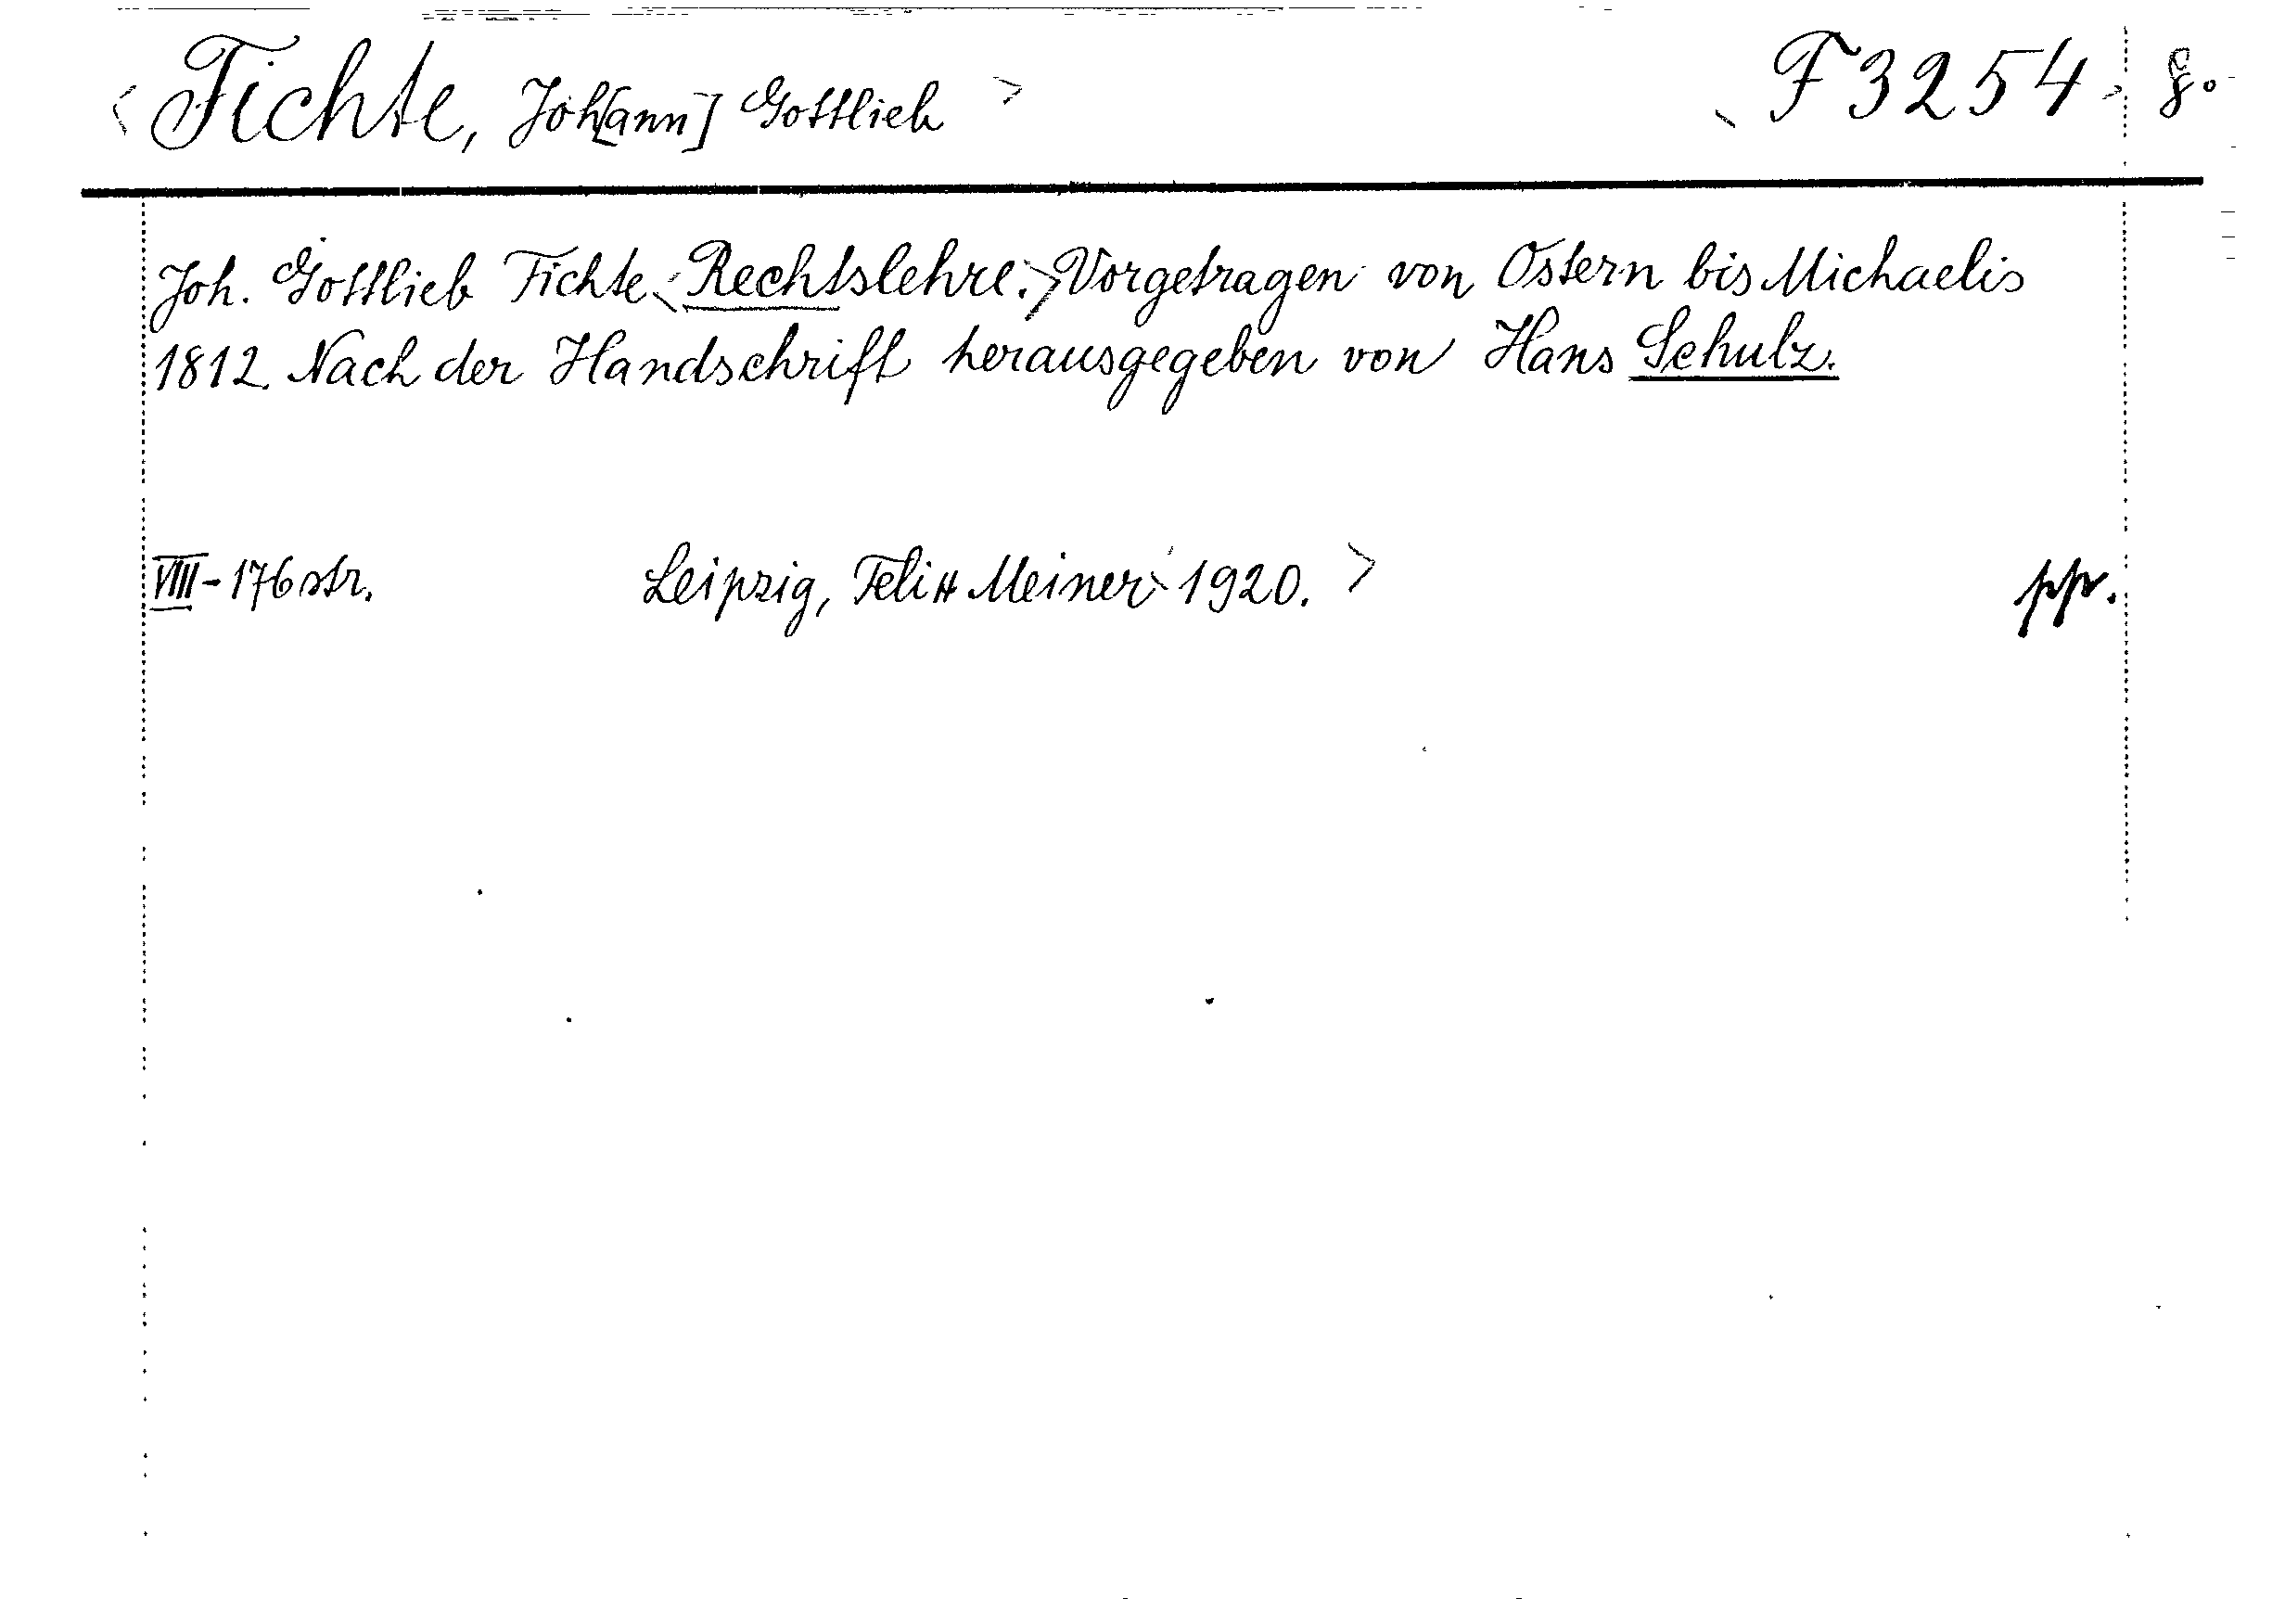 <Fichte, Joh[ann] Gottlieb> <F 3254> 8°
Joh. Gottlieb Fichte <Rechtslehre.> Vorgetragen von Ostern bis Michaelis
1812. Nach der Handschrift herausgegeben von Hans Schulz.
VIII-176 str. Leipzig, Felix Meiner <1920.> pp.